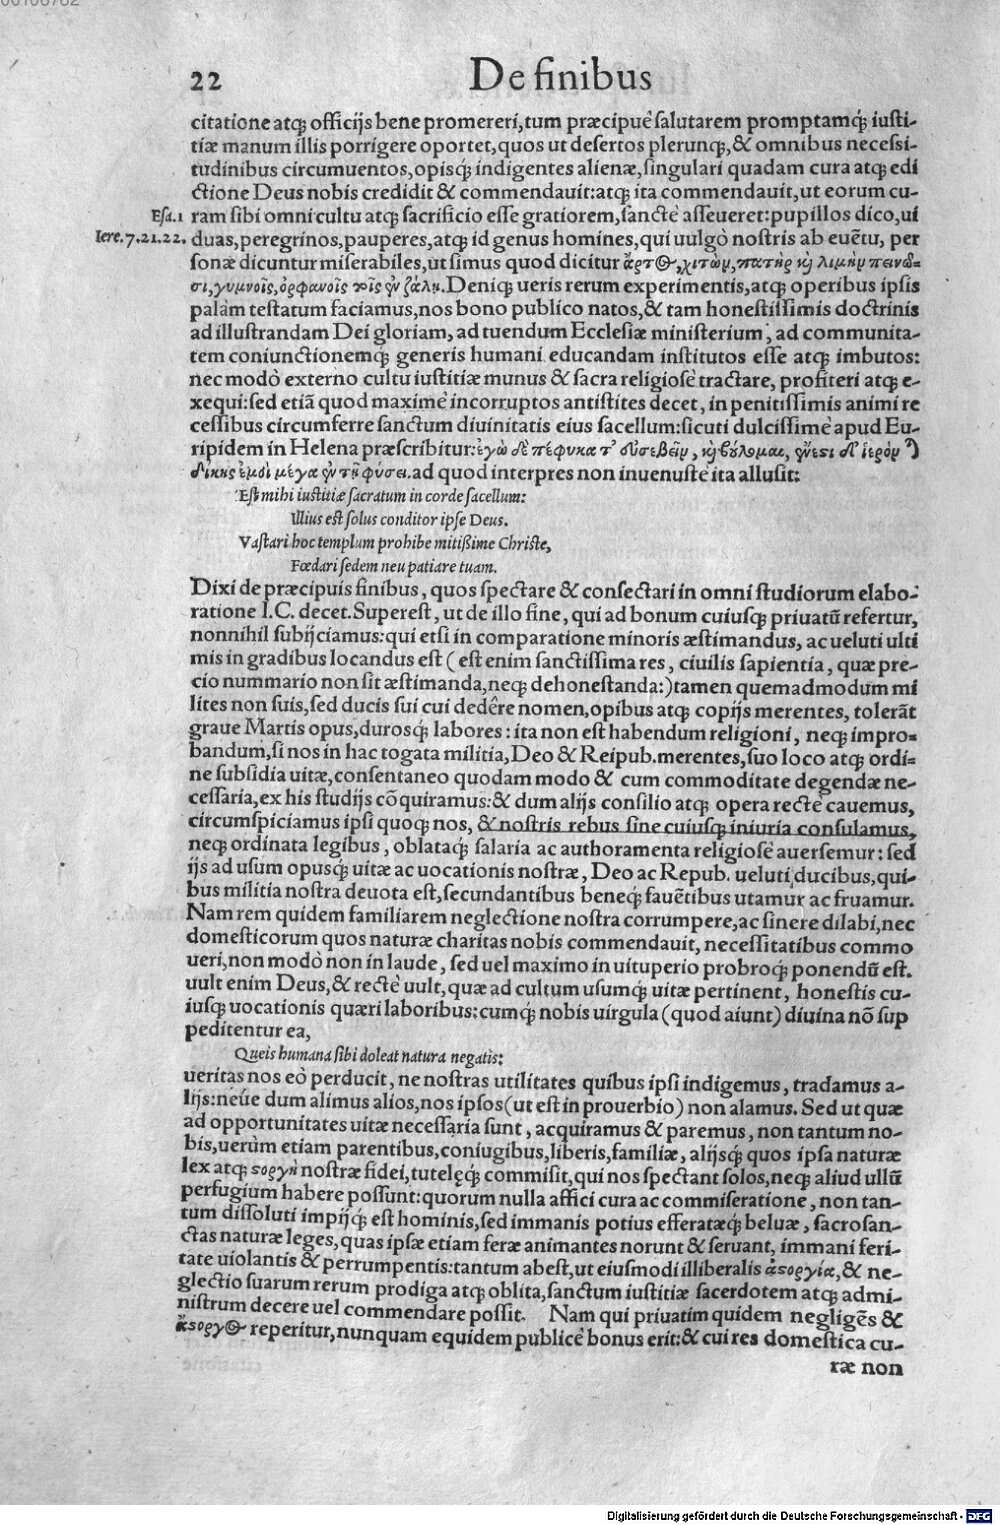 22 De finibus
citatione atq; officijs bene promereri, tum præcipuè salutarem promptamq́; iusti-
tiæ manum illis porrigere oportet, quos ut desertos plerunq;, & omnibus necessi-
tudinibus circumuentos, opisq́; indigentes alienæ, singulari quadam cura atq; edi
ctione Deus nobis credidit & commendauit: atq; ita commendauit, ut eorum cu-
Esa.1 ram sibi omni cultu atq; sacrificio esse gratiorem, sanctè asseueret: pupillos dico, ui
Iere.7.21.22. duas, peregrinos, pauperes, atq; id genus homines, qui uulgò nostris ab euẽtu, per
sonæ dicuntur miserabiles, ut simus quod dicitur ἄρτος, χιτὼν, πατὴρ καὶ λιμὴν πεινῶ-
σι, γυμνοῖς, ὀρφανοῖς τοῖς ἐν ζάλῃ. Deniq; ueris rerum experimentis, atq; operibus ipsis
palàm testatum faciamus, nos bono publico natos, & tam honestissimis doctrinis
ad illustrandam Dei gloriam, ad tuendum Ecclesiæ ministerium, ad communita-
tem coniunctionemq́; generis humani educandam institutos esse atq; imbutos:
nec modò externo cultu iustitiæ munus & sacra religiosè tractare, profiteri atq; e-
xequi: sed etiã quod maximè incorruptos antistites decet, in penitissimis animi re
cessibus circumferre sanctum diuinitatis eius sacellum: sicuti dulcissimè apud Eu-
ripidem in Helena præscribitur: ἐγὼ δὲ πέφυκα τ' εὐσεβεῖν, καὶ βούλομαι, ἔνεστι δ' ἱερὸν τῆς
δίκης ἐμοὶ μέγα ἐν τῇ φύσει. ad quod interpres non inuenustè ita allusit:
Est mihi iustitiæ sacratum in corde sacellum:
Illius est solus conditor ipse Deus.
Vastari hoc templum prohibe mitißime Christe,
Fœdari sedem neu patiare tuam.
Dixi de præcipuis finibus, quos spectare & consectari in omni studiorum elabo-
ratione I.C. decet. Superest, ut de illo fine, qui ad bonum cuiusq; priuatũ refertur,
nonnihil subijciamus: qui etsi in comparatione minoris æstimandus, ac ueluti ulti
mis in gradibus locandus est (est enim sanctissima res, ciuilis sapientia, quæ pre-
cio nummario non sit æstimanda, neq; dehonestanda:) tamen quemadmodum mi
lites non suis, sed ducis sui cui dedêre nomen, opibus atq; copijs merentes, tolerãt
graue Martis opus, durosq́; labores: ita non est habendum religioni, neq; impro-
bandum, si nos in hac togata militia, Deo & Reipub. merentes, suo loco atq; ordi-
ne subsidia uitæ, consentaneo quodam modo & cum commoditate degendæ ne-
cessaria, ex his studijs cõquiramus: & dum alijs consilio atq; opera rectè cauemus,
circumspiciamus ipsi quoq; nos, & nostris rebus sine cuiusq; iniuria consulamus,
neq; ordinata legibus, oblataq́; salaria ac authoramenta religiosè auersemur: sed
ijs ad usum opusq́; uitæ ac uocationis nostræ, Deo ac Repub. ueluti ducibus, qui-
bus militia nostra deuota est, secundantibus beneq́; fauẽtibus utamur ac fruamur.
Nam rem quidem familiarem neglectione nostra corrumpere, ac sinere dilabi, nec
domesticorum quos naturæ charitas nobis commendauit, necessitatibus commo
ueri, non modò non in laude, sed uel maximo in uituperio probroq́; ponendũ est.
uult enim Deus, & rectè uult, quæ ad cultum usumq́; uitæ pertinent, honestis cu-
iusq; uocationis quæri laboribus: cumq́; nobis uirgula (quod aiunt) diuina nõ sup
peditentur ea,
Queis humana sibi doleat natura negatis:
ueritas nos eò perducit, ne nostras utilitates quibus ipsi indigemus, tradamus a-
lijs: néue dum alimus alios, nos ipsos (ut est in prouerbio) non alamus. Sed ut quæ
ad opportunitates uitæ necessaria sunt, acquiramus & paremus, non tantum no-
bis, uerùm etiam parentibus, coniugibus, liberis, familiæ, alijsq́; quos ipsa naturæ
lex atq; ϛοργὴ nostræ fidei, tutelęq́; commisit, qui nos spectant solos, neq; aliud ullũ
perfugium habere possunt: quorum nulla affici cura ac commiseratione, non tan-
tum dissoluti impijq́; est hominis, sed immanis potius efferatæq́; beluæ, sacrosan-
ctas naturæ leges, quas ipsæ etiam feræ animantes norunt & seruant, immani feri-
tate uiolantis & perrumpentis: tantum abest, ut eiusmodi illiberalis ἀϛοργία, & ne-
glectio suarum rerum prodiga atq; oblita, sanctum iustitiæ sacerdotem atq; admi-
nistrum decere uel commendare possit. Nam qui priuatim quidem negligẽs &
ἄϛοργος reperitur, nunquam equidem publicè bonus erit: & cui res domestica cu-
ræ non
Digitalisierung gefördert durch die Deutsche Forschungsgemeinschaft - DFG